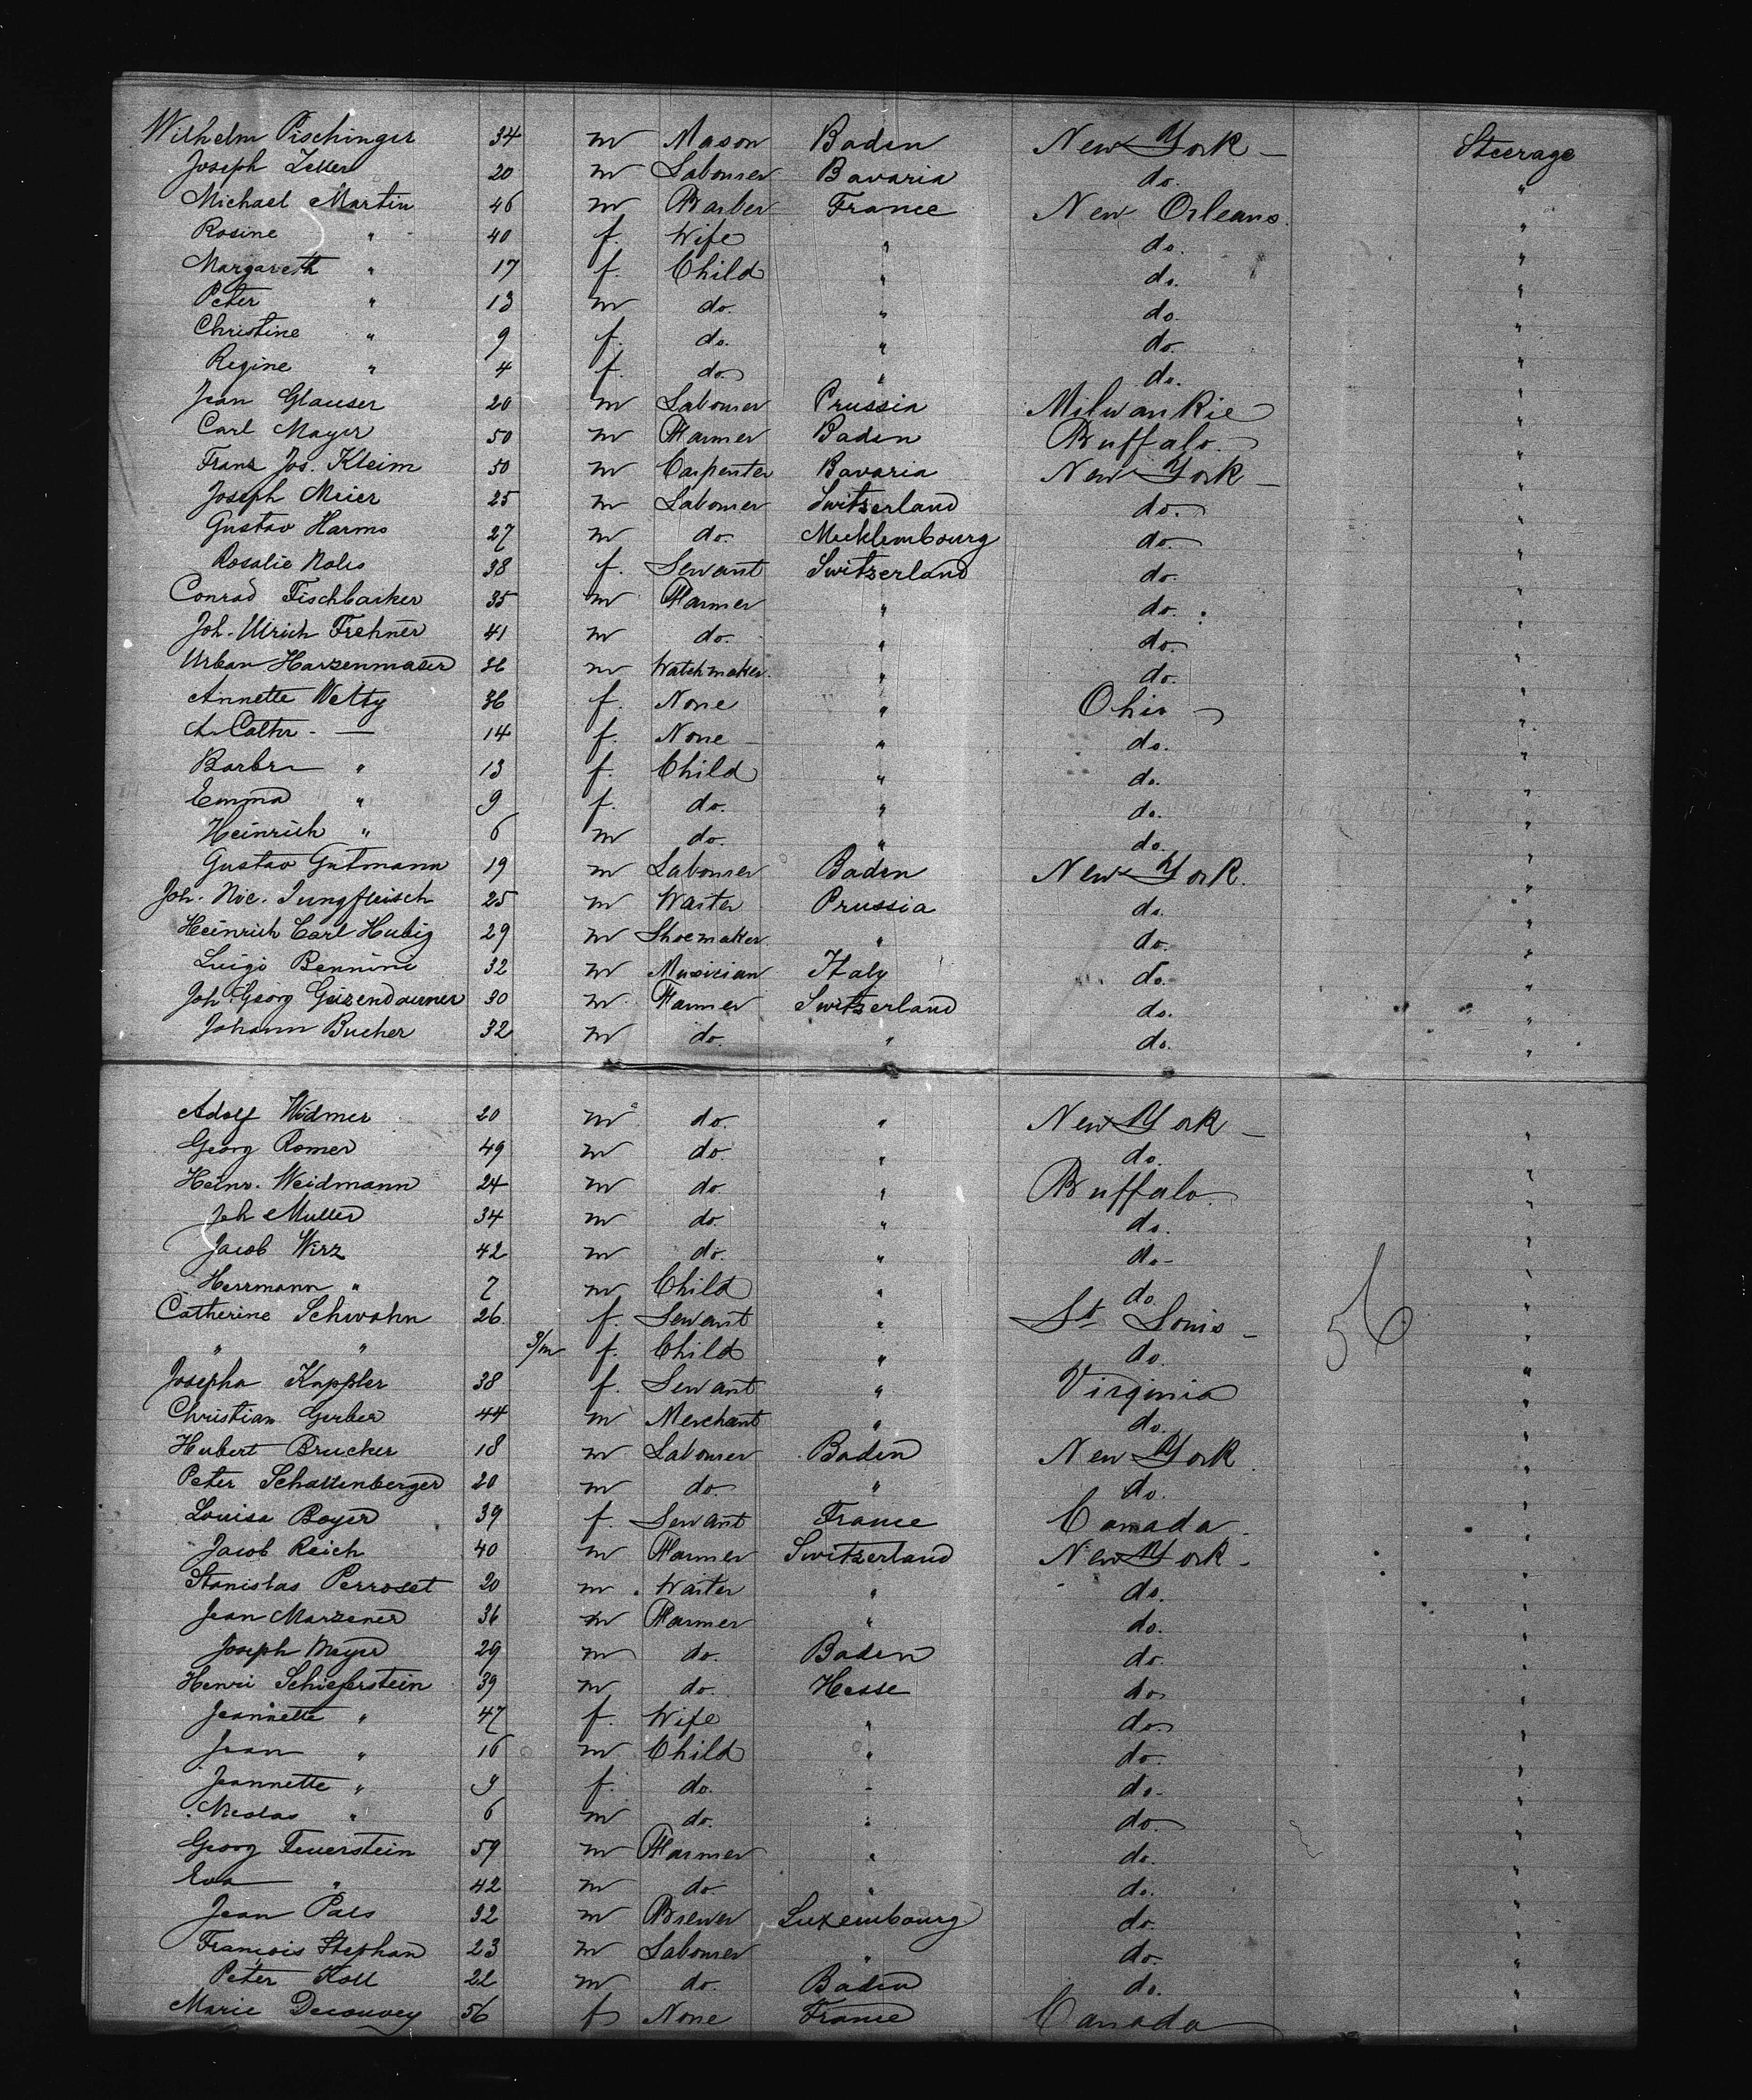 Wilhelm Pischinger 34 m Mason Baden New York – Steerage
Joseph Zeller 20 m Labourer Bavaria do. "
Michael Martin 46 m Barber France New Orleans. "
Rosine " 40 f. Wife " do. "
Margareth " 17 f. Child " do. "
Peter " 13 m do. " do. "
Christine " 9 f. do. " do. "
Regine " 4 f. do. " do. "
Jean Glauser 20 m Labourer Prussia Milwaukie "
Carl Mayer 50 m Farmer Baden Buffalo. "
Franz Jos. Kleim 50 m Carpenter Bavaria New York – "
Joseph Meier 25 m Labourer Switzerland do. "
Gustav Harms 27 m do. Mecklembourg do. "
Rosalie 38 f. Servant Switzerland do. "
Conrad Fischbacker 35 m Farmer " do. "
Joh. Ulrich Frehner 41 m do. " do. "
Urban Harzenmaser 36 m Watchmaker. " do. "
Annette Welty 36 f. None " Ohio "
A. Cathr. — 14 f. None " do. "
Barbr " 13 f. Child " do. "
Emma " 9 f. do. " do. "
Heinrich " 6 m do. " do. "
Gustav Gutmann 19 m Labourer Baden New York. "
Joh. Nic. Jungfleisch 25 m Waiter Prussia do. "
Heinrich Carl Hubig 29 m Shoemaker " do. "
Luigi Bennini 32 m Musician Italy do. "
Joh. Georg 30 m Farmer Switzerland do. "
Johann Bucher 32 m do. " do. "
Adolf Widmer 20 m do. " New York – "
Georg Romer 49 m do. " do. "
Heinr. Weidmann 24 m do. " Buffalo "
Joh Muller 34 m do. " do. "
Jacob Wirz 42 m do. " do. "
Herrmann " 7 m Child " do. "
Catherine Schwohn 26 f. Servant " St. Louis – "
" " 3/m f. Child " do. 56 "
Josepha Kappler 38 f. Servant " Virginia "
Christian Gerber 44 m Merchant " do. "
Hubert Brucker 18 m Labourer Baden New York. "
Peter Schallenberger 20 m do. " do. "
Louisa Boyer 39 f. Servant France Canada. "
Jacob Reich 40 m Farmer Switzerland New York – "
Stanislas Perroset 20 m Waiter " do. "
Jean Marzener 36 m Farmer " do. "
Joseph Meyer 29 m do. Baden do. "
Henri Schieferstein 39 m do. Hesse do. "
Jeannette " 47 f. Wife " do. "
Jean " 16 m Child " do. "
Jeannette " 9 f. do. " do. "
Nicolas " 6 m do. " do. "
Georg Feuerstein 59 m Farmer " do. "
Eva " 42 m do. " do. "
Jean Pals 32 m Brewer Luxembourg do. "
François Stephan 23 m Labourer " do. "
Peter Koll 22 m do. Baden do. "
Marie Decouvey 56 f None France Canada "